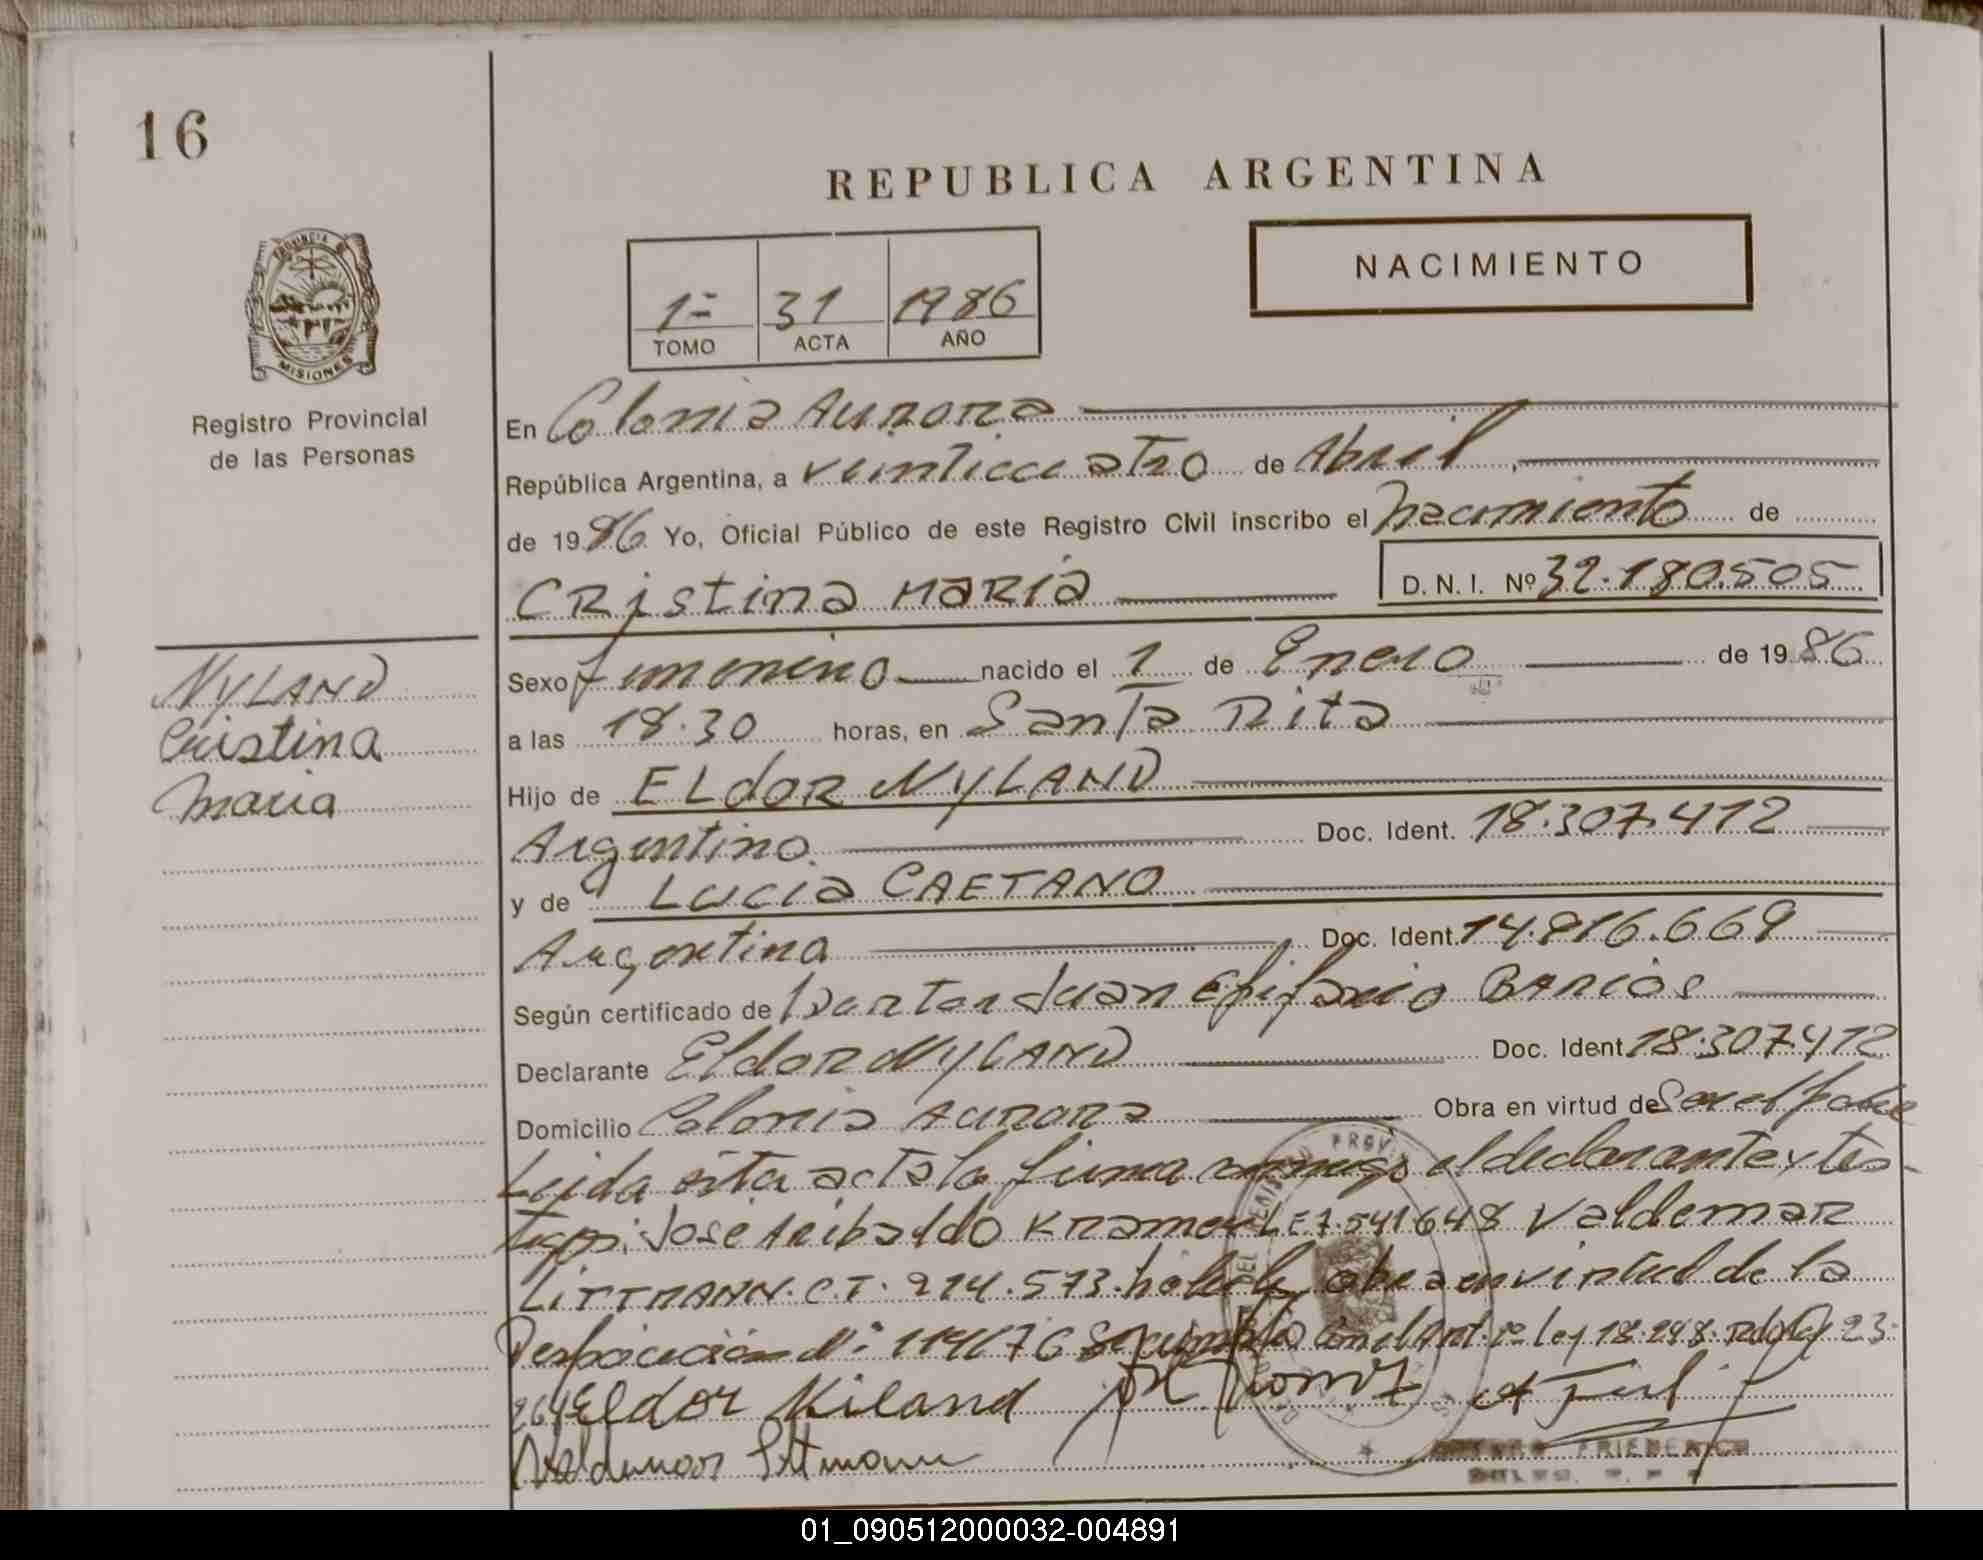 16
REPUBLICA ARGENTINA
NACIMIENTO
1- 31 1986
TOMO ACTA AÑO
PROVINCIA DE
MISIONES
Registro Provincial
de las Personas
En Colonia Aurora
República Argentina, a veinticuatro de Abril
de 1986 Yo, Oficial Público de este Registro Civil inscribo el Nacimiento de
CRistina MARIA D.N.I. Nº 32.180.505
NYLAND
Cristina
Maria
Sexo femenino nacido el 1 de Enero de 1986
a las 18.30 horas, en Santa Rita
Hijo de ELdOR NYLAND
Argentino Doc. Ident. 18.307.412
y de Lucia CAETANO
Argentina Doc. Ident. 14.816.669
Según certificado de Doctor Juan Epifanio BARIOS
Declarante Eldor NYLAND Doc. Ident. 18.307.412
Domicilio Colonia Aurora Obra en virtud de Ser el padre
Leida esta acta la firma conmigo el declarante y tes-
tigos: Jose Aribaldo Kramer LE 7.541648 Valdemar
LITTMANN. C.I. 214.573. obra en virtud de la
Nº 114/76 Se cumplio con el Art. Ley 18.248. 23
264 Eldor Kiland
Waldemar Littmann
FRIEDERICH
01_090512000032-004891